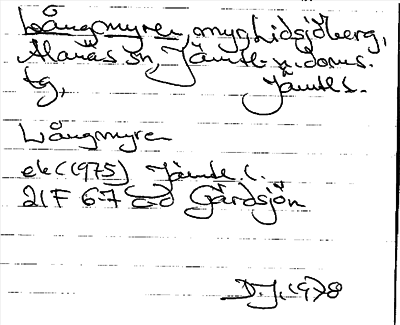 Långmyren, myg Lidsjöberg,
Alanäs sn, Jämtl. n. doms.
tg, Jämtl.
Långmyren
ek (1975) Jämtl. l.
21F 6-7 Gårdsjön
D.J. 1978